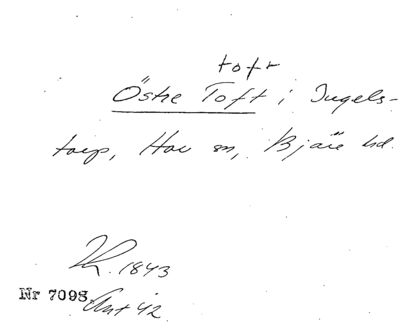 toft
Östre Toft i Ingels-
torp, Hov sn, Bjäre hd.
Lk. 1843
Nr 7098 Ant 42